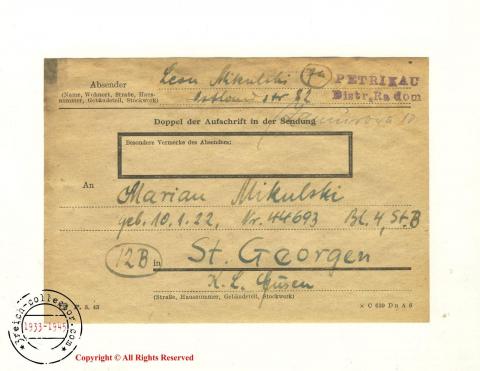 Absender
(Name, Wohnort, Straße, Haus-
nummer, Gebäudeteil, Stockwerk)
Leon Mikulski
PETRIKAU
Distr. Radom
Ostlandstr 82
Doppel der Aufschrift in der Sendung
Besondere Vermerke des Absenders:
An
Marian Mikulski
geb. 10.1.22, Nr. 44693 Bl. 4, St. B
12B in St. Georgen
K. L. Gusen
(Straße, Hausnummer, Gebäudeteil, Stockwerk)
5. 43
× C 639 Din A 6
3reich-collector.com
1933-1945
Copyright © All Rights Reserved